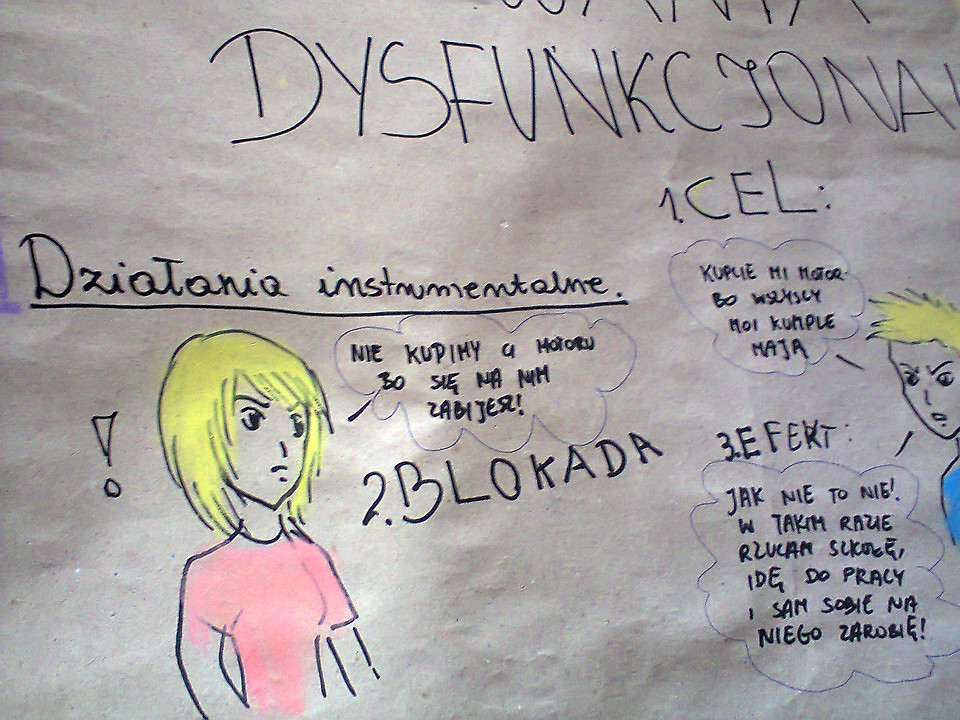 DYSFUNKCJONA
1. CEL:
Działania instrumentalne.
KUPCIE MI MOTOR
BO WSZYSCY
MOI KUMPLE
MAJĄ
NIE KUPIMY CI MOTORU
BO SIĘ NA NIM
ZABIJESZ!
!
2. BLOKADA
3. EFEKT:
JAK NIE TO NIE!
W TAKIM RAZIE
RZUCAM SZKOŁĘ,
IDĘ DO PRACY
I SAM SOBIE NA
NIEGO ZAROBIĘ!